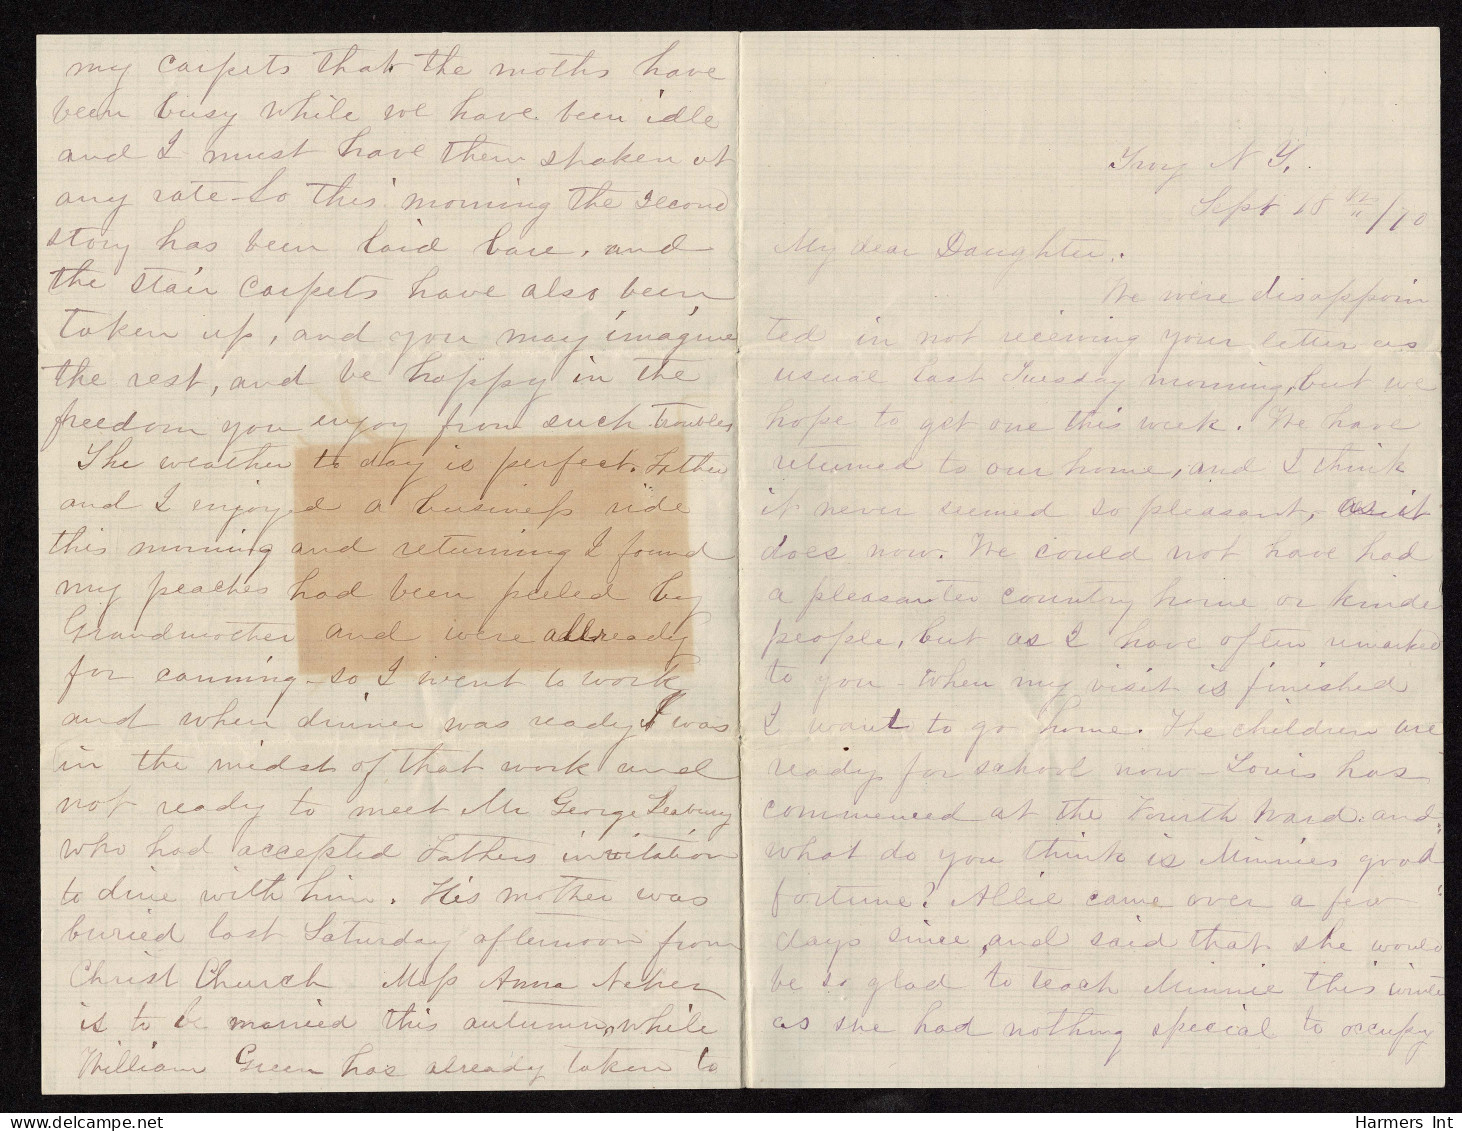 my carpets that the moths have
been busy while we have been idle
and I must have them shaken at
any rate - So this morning the second
story has been laid bare, and
the stair carpets have also been
taken up, and you may imagine
the rest, and be happy in the
freedom you enjoy from such troubles
The weather to day is perfect. Father
and I enjoyed a business ride
this morning and returning I found
my peaches had been peeled by
Grandmother and were allready
for canning - so I went to work
and when dinner was ready I was
in the midst of that work and
not ready to meet Mr George Seabury
who had accepted Fathers invitation
to dine with him. His mother was
buried last Saturday afternoon from
Christ Church Miss Anna
is to be married this autumn, while
William Green has already taken to
Troy N Y.
Sept 18 /70
My dear Daughter.
We were disappoin
ted in not receiving your letter as
usual last Tuesday morning, but we
hope to get one this week. We have
returned to our home, and I think
it never seemed so pleasant, as it
does now. We could not have had
a pleasanter country home or kinder
people, but as I have often remarked
to you - when my visit is finished
I want to go home. The children are
ready for school now - Louis has
commenced at the Fourth Ward. and
what do you think is Minnies good
fortune? Allie came over a few
days since, and said that she would
be so glad to teach Minnie this winter
as she had nothing special to occupy
Harmers Int